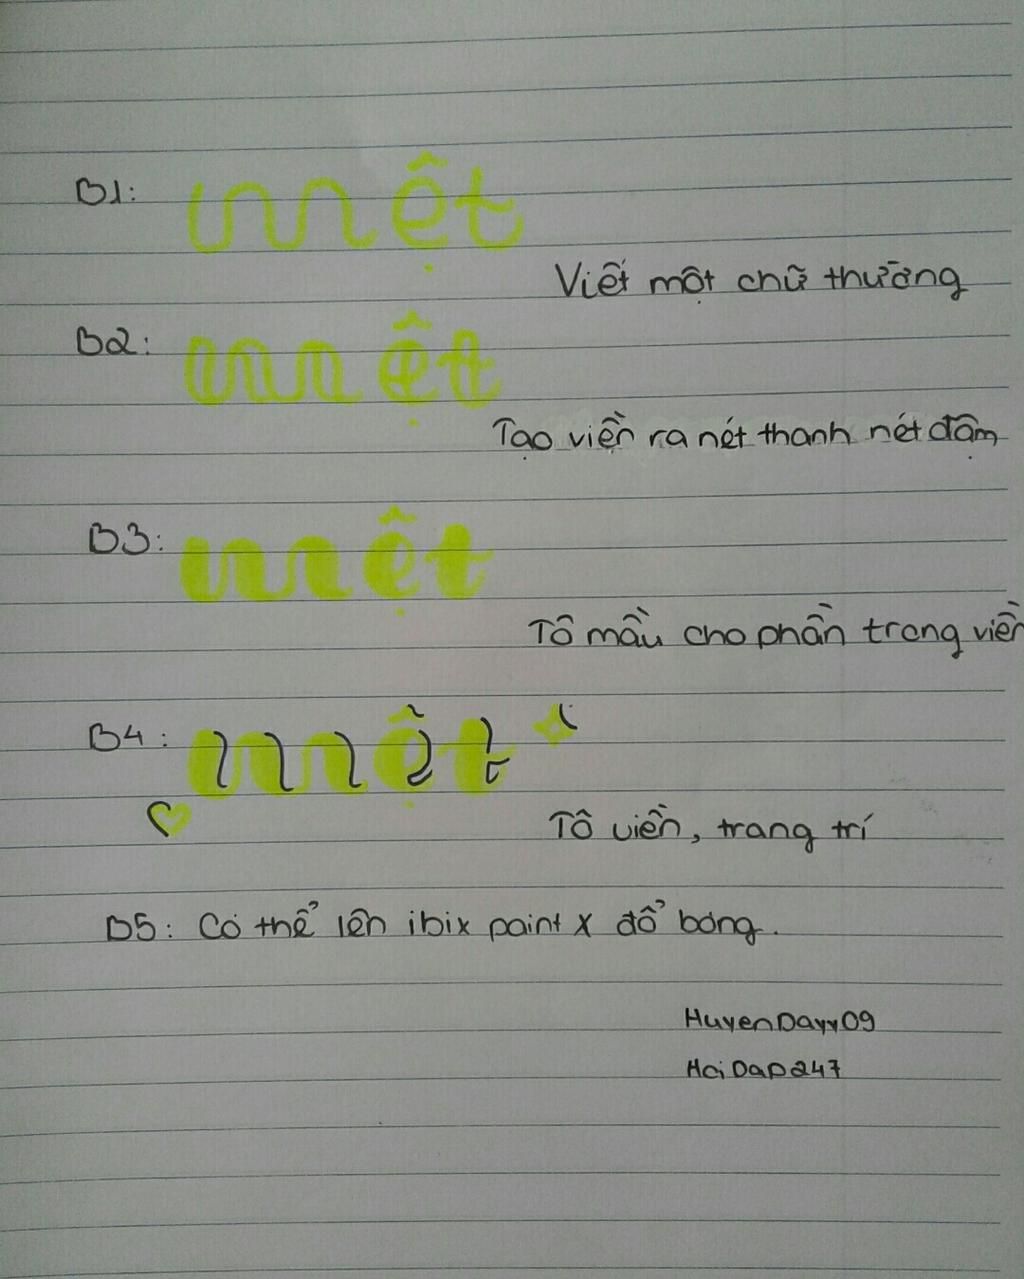 B1: mệt
Viết một chữ thường
B2: mệt
Tạo viền ra nét thanh nét đậm
B3: mệt
Tô mầu cho phần trong viền
B4: mệt
Tô viền, trang trí
B5: Có thể lên ibix paint X đổ bóng.
HuyenDayy09
HoiDap247